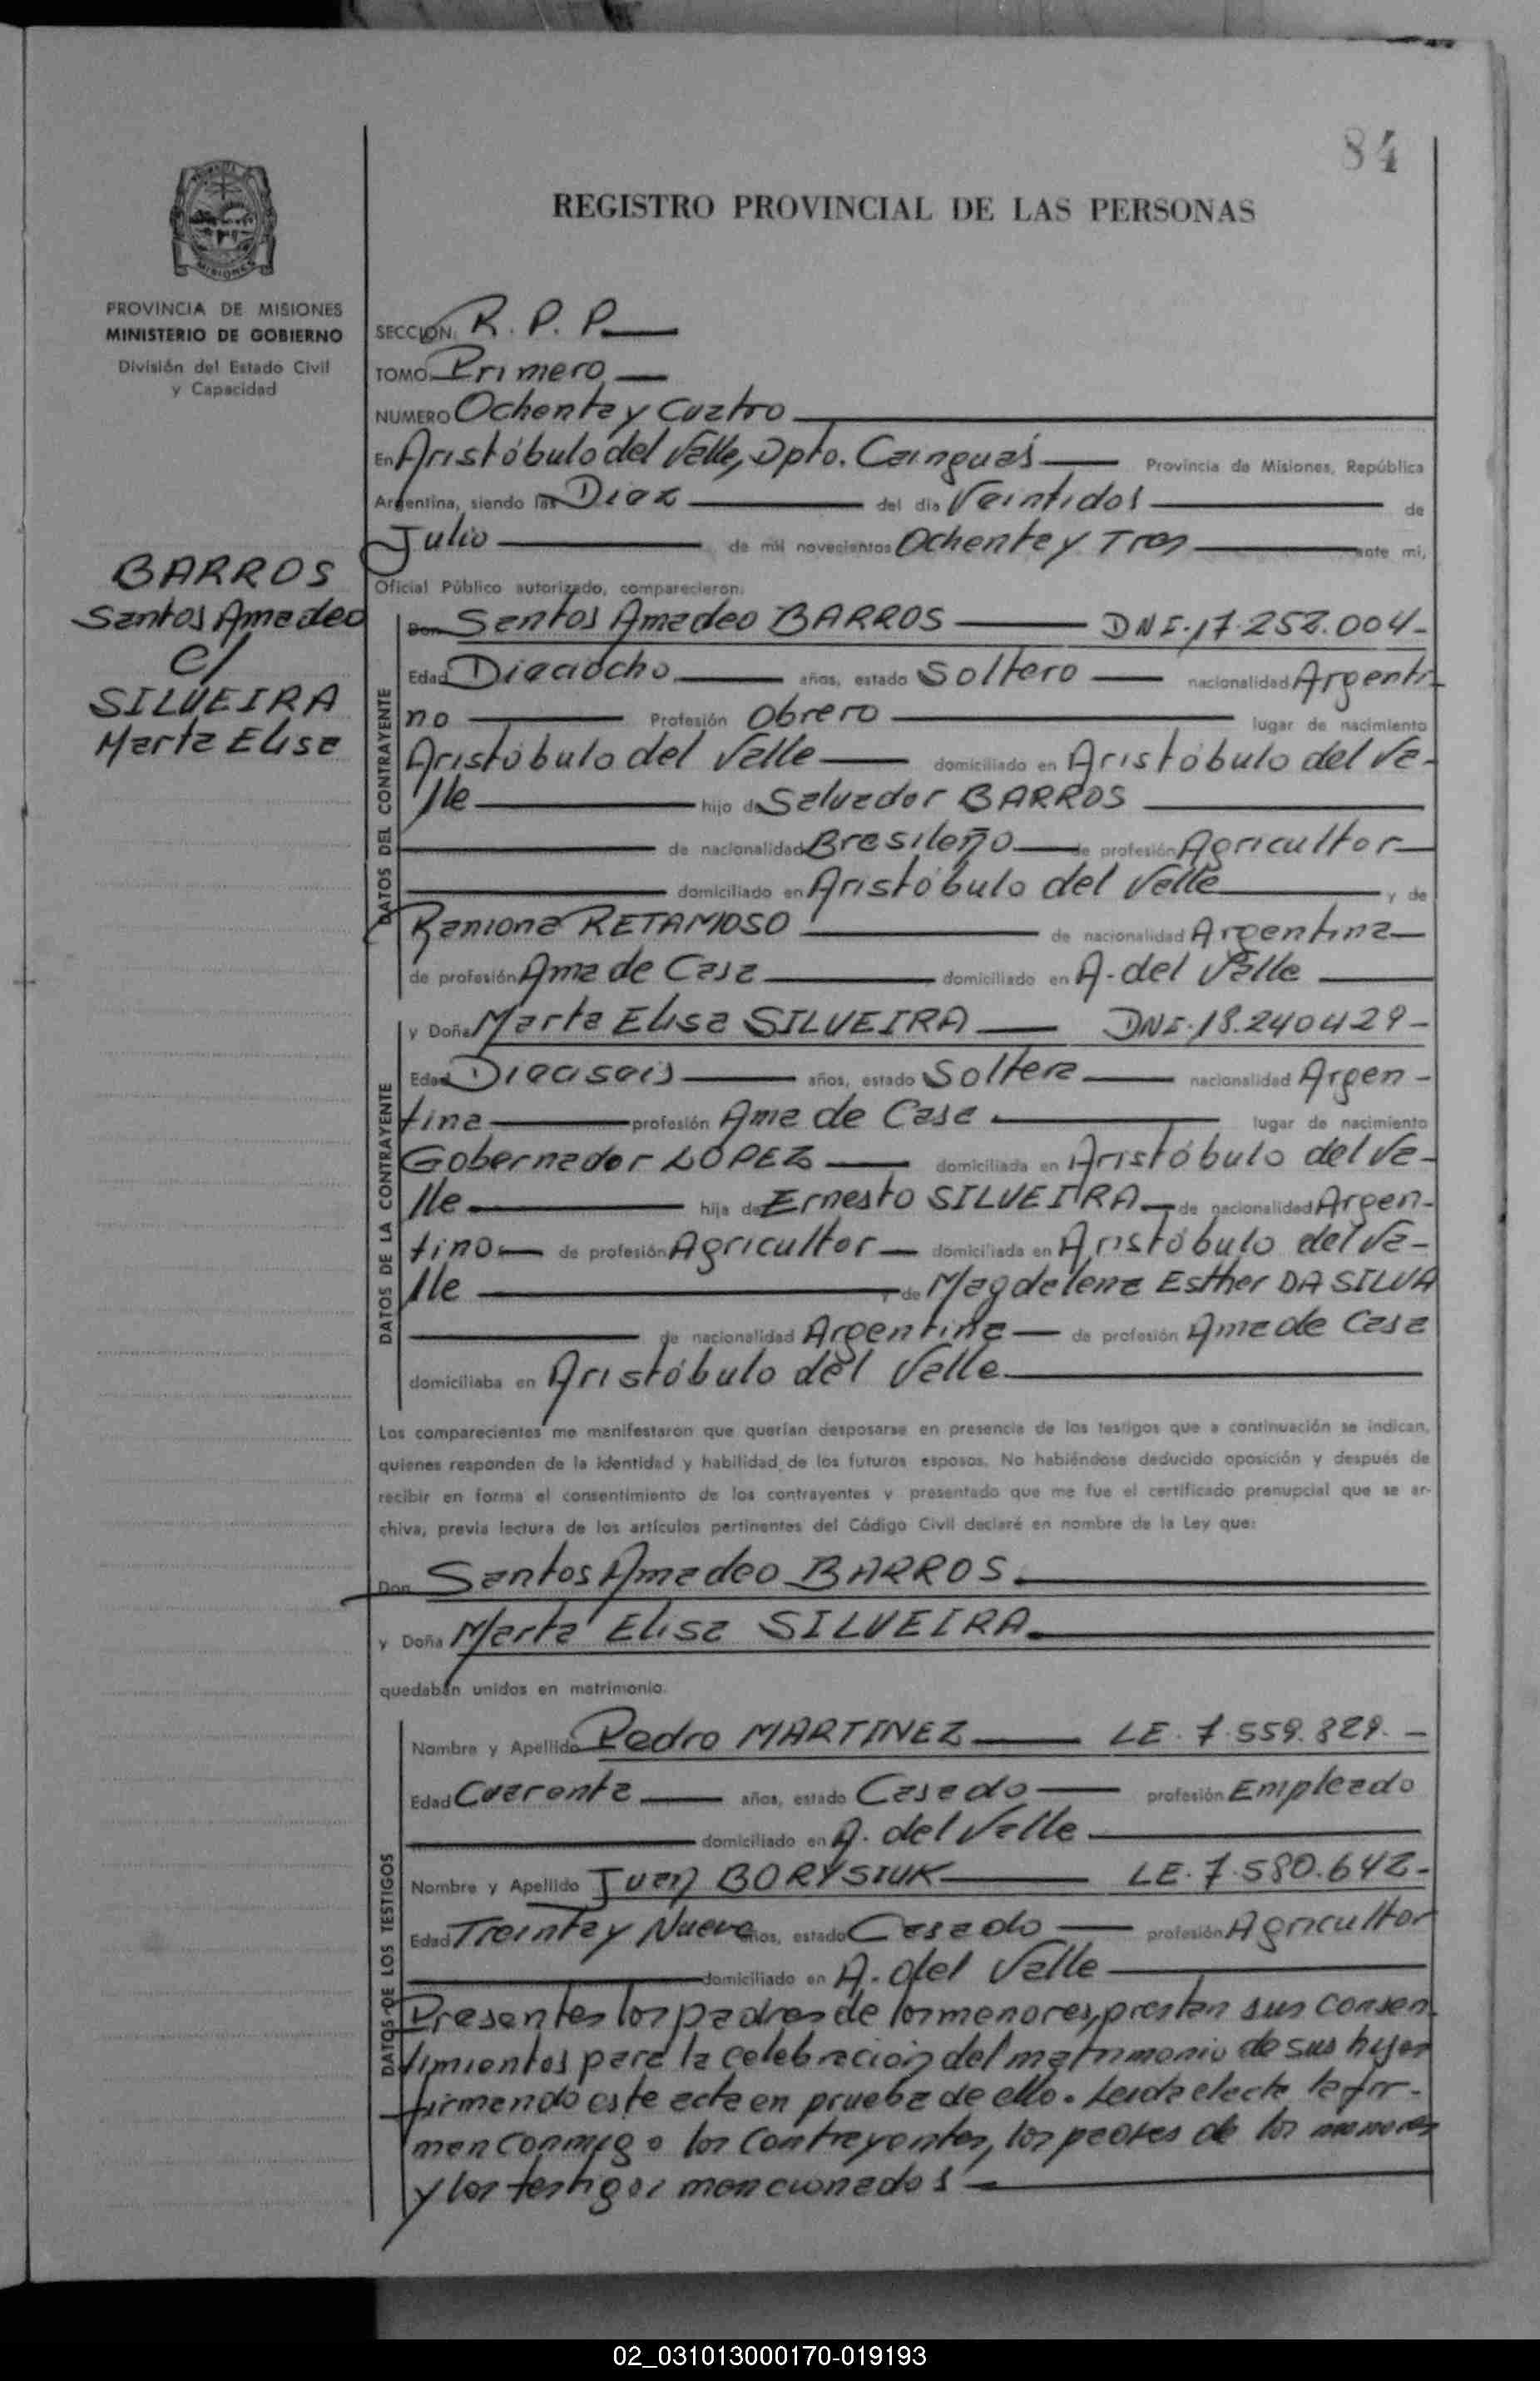 84
REGISTRO PROVINCIAL DE LAS PERSONAS
MISIONES
PROVINCIA DE MISIONES
MINISTERIO DE GOBIERNO
División del Estado Civil
y Capacidad
BARROS
Santos Amadeo
c/
SILVEIRA
Marta Elisa
SECCION: R. P. P.
TOMO Primero
NUMERO Ochenta y Cuatro
En Aristóbulo del Valle, Dpto. Cainguás Provincia de Misiones, República
Argentina, siendo las Diez del día Veintidos de
Julio de mil novecientos Ochenta y Tres ante mí,
Oficial Público autorizado, comparecieron:
DATOS DEL CONTRAYENTE
Don Santos Amadeo BARROS DNI. 17.252.004-
Edad Dieciocho años, estado Soltero nacionalidad Argenti-
no Profesión Obrero lugar de nacimiento
Aristóbulo del Valle domiciliado en Aristóbulo del Va-
lle hijo de Salvador BARROS
de nacionalidad Brasileño de profesión Agricultor
domiciliado en Aristóbulo del Valle y de
Ramona RETAMOSO de nacionalidad Argentina
de profesión Ama de Casa domiciliado en A. del Valle
DATOS DE LA CONTRAYENTE
y Doña Marta Elisa SILVEIRA DNI. 18.240429-
Edad Dieciseis años, estado Soltera nacionalidad Argen-
tina profesión Ama de Casa lugar de nacimiento
Gobernador LOPEZ domiciliada en Aristóbulo del Va-
lle hija de Ernesto SILVEIRA de nacionalidad Argen-
tino de profesión Agricultor domiciliado en Aristóbulo del Va-
lle y de Magdalena Esther DA SILVA
de nacionalidad Argentina de profesión Ama de Casa
domiciliaba en Aristóbulo del Valle
Los comparecientes me manifestaron que querían desposarse en presencia de los testigos que a continuación se indican,
quienes responden de la identidad y habilidad de los futuros esposos. No habiéndose deducido oposición y después de
recibir en forma el consentimiento de los contrayentes y presentado que me fue el certificado prenupcial que se ar-
chiva, previa lectura de los artículos pertinentes del Código Civil declaré en nombre de la Ley que:
Don Santos Amadeo BARROS.
y Doña Marta Elisa SILVEIRA.
quedaban unidos en matrimonio.
DATOS DE LOS TESTIGOS
Nombre y Apellido Pedro MARTINEZ LE. 7.559.829.-
Edad Cuarenta años, estado Casado profesión Empleado
domiciliado en A. del Valle
Nombre y Apellido Juan BORYSIUK LE. 7.580.642-
Edad Treinta y Nueve años, estado Casado profesión Agricultor
domiciliado en A. del Valle
Presentes los padres de los menores, prestan sus consen
timientos para la celebración del matrimonio de sus hijos
firmando este acta en prueba de ello. Leida el acta la fir-
man conmigo los contrayentes, los padres de los menores
y los testigos mencionados
02_031013000170-019193